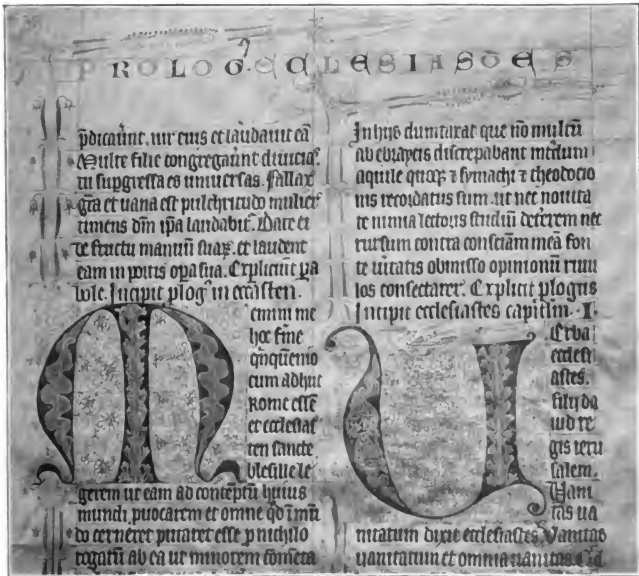 PROLOG. ECCLESIASTES
p̄dicaūnt. uir eius et laudauit eā
Multe filie congregaūnt diuicias
tu supgressa es uniuersas. fallax
gr̄a et uana est pulchritudo mulier
timens dn̄m ip̄a laudabit̄. Date ei
de fructu manuū suaꝝ. et laudent
eam in portis oꝑa sua. Expliciūt ꝑa
bole. Incipit ꝓlog' in eccl̄asten.
Memini me
hoc ferme
qn̄quēnio
cum adhuc
Rome essē
et ecclesias
ten sancte
blesille le
gerem ut eam ad contēptū huius
mundi ꝓuocarem et omne qd̄ ī mū
do cerneret putaret esse ꝓ nichilo
rogatū ab ea ut
In hijs dumtaxat que nō multū
ab ebraycis discrepabant
aquile quoꝙ ⁊ symachi ⁊ theodocio
nis recordatus sum. ut nec nouita
te nimia lectoris studiū detērem nec
rursum contra consciām meā fon
te ueritatis obmisso opinionū riuu
los consectarer. Explicit ꝓlogus
Incipit ecclesiastes capitlm. I.
UErba
ecclesi
astes.
filij da
uid re
gis ieru
salem.
Uani
tas ua
nitatum dixit ecclesiastes. Vanitas
uanitatum et omnia uanitas. Qid